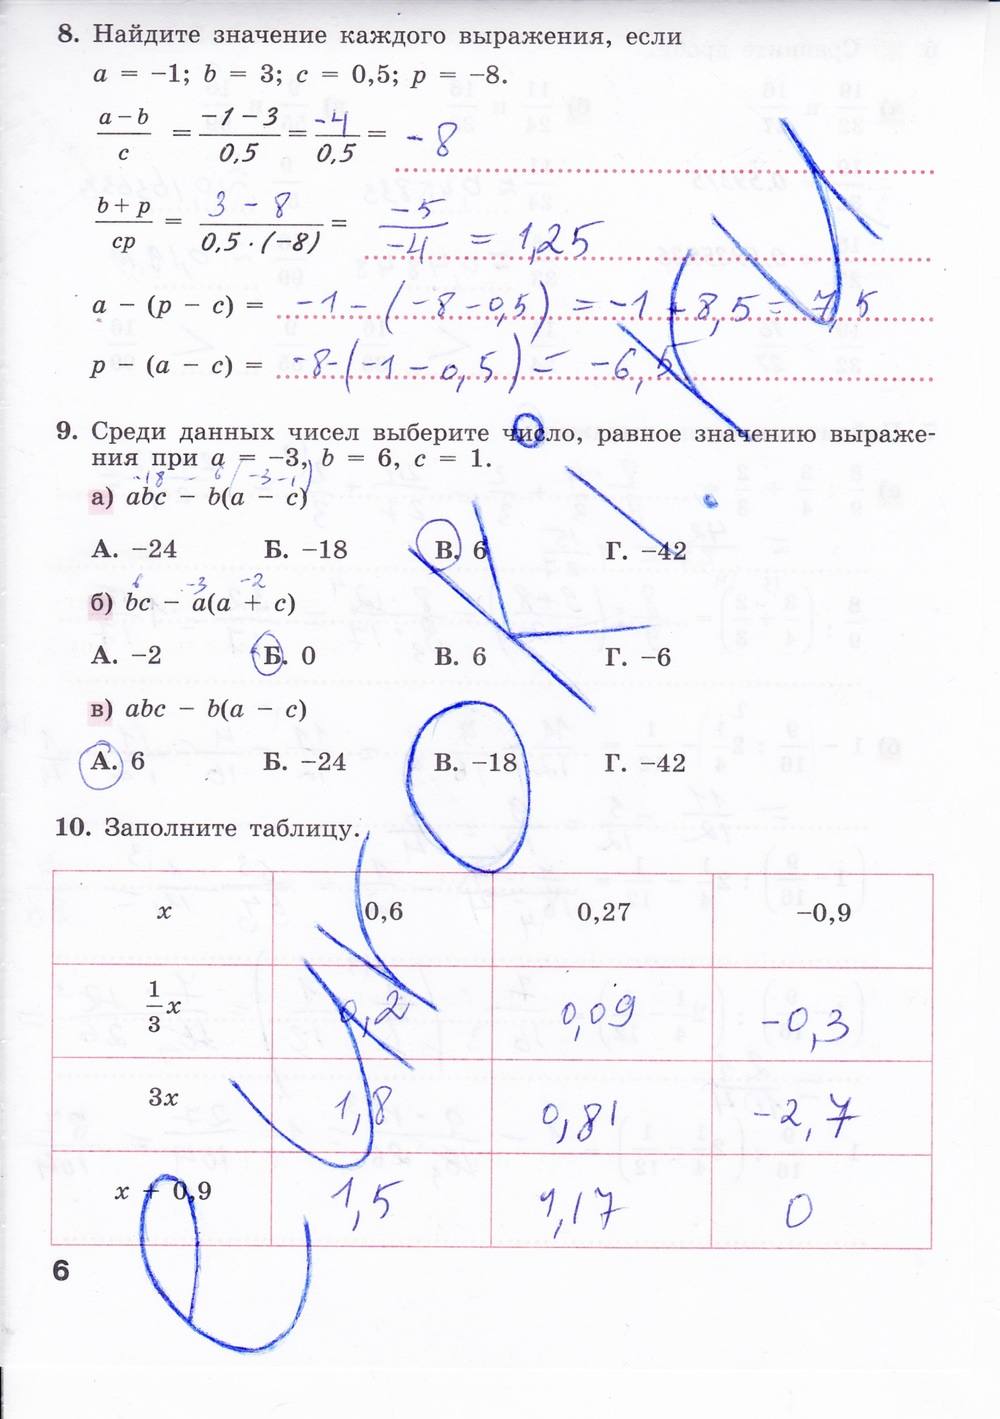 8. Найдите значение каждого выражения, если
a = −1; b = 3; c = 0,5; p = −8.
(a − b)/c = (−1 − 3)/0,5 = −4/0,5 = −8
(b + p)/cp = (3 − 8)/(0,5 · (−8)) = −5/−4 = 1,25
a − (p − c) = −1 − (−8 − 0,5) = −1 + 8,5 = 7,5
p − (a − c) = −8 − (−1 − 0,5) = −6,5
9. Среди данных чисел выберите число, равное значению выраже-
ния при a = −3, b = 6, c = 1.
−18 − 6(−3 −1)
а) abc − b(a − c)
А. −24 Б. −18 В. 6 Г. −42
6 −3 −2
б) bc − a(a + c)
А. −2 Б. 0 В. 6 Г. −6
в) abc − b(a − c)
А. 6 Б. −24 В. −18 Г. −42
10. Заполните таблицу.
x 0,6 0,27 −0,9
1/3 x 0,2 0,09 −0,3
3x 1,8 0,81 −2,7
x + 0,9 1,5 1,17 0
6